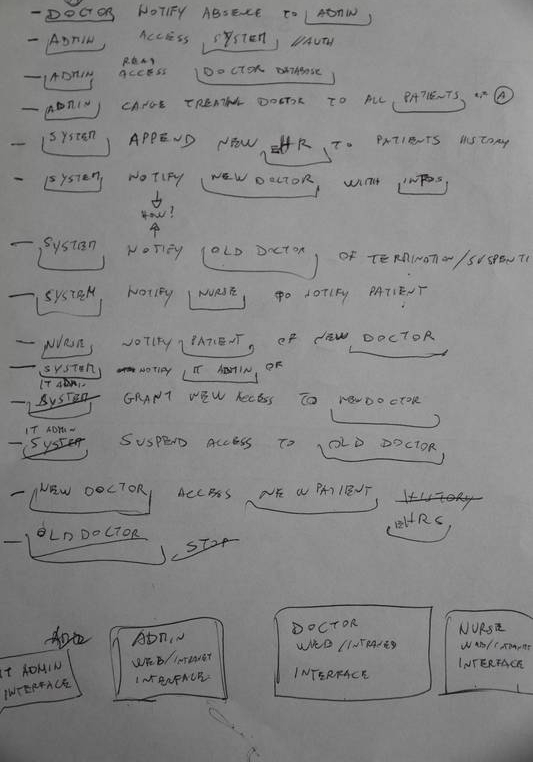 - DOCTOR NOTIFY ABSENCE TO ADMIN
- ADMIN ACCESS SYSTEM //AUTH
- ADMIN READ ACCESS DOCTOR DATABASE
- ADMIN CANGE TREATING DOCTOR TO ALL PATIENTS A
- SYSTEM APPEND NEW EHR TO PATIENTS HISTORY
- SYSTEM NOTIFY NEW DOCTOR WITH INFOS
HOW?
- SYSTEM NOTIFY OLD DOCTOR OF TERMINATION/SUSPENTI
- SYSTEM NOTIFY NURSE TO NOTIFY PATIENT
- NURSE NOTIFY PATIENT OF NEW DOCTOR
- SYSTEM NOTIFY IT ADMIN OF
IT ADMIN
- SYSTEM GRANT NEW ACCESS TO NEWDOCTOR
IT ADMIN
- SYSTEM SUSPEND ACCESS TO OLD DOCTOR
- NEW DOCTOR ACCESS NEW PATIENT HISTORY
EHRS
- OLD DOCTOR STOP
IT ADMIN
INTERFACE
ADMIN
WEB/INTRANET
INTERFACE
DOCTOR
WEB/INTRANET
INTERFACE
NURSE
WEB/INTRANET
INTERFACE